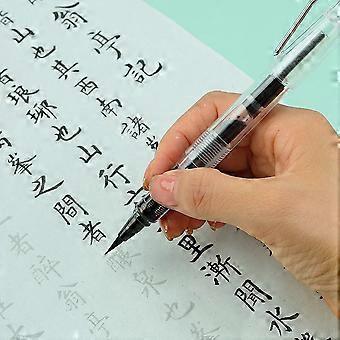 翁亭記
山也其西南諸
琅琊也山行六
里漸聞水
峯之間者釀泉也
者醉翁亭